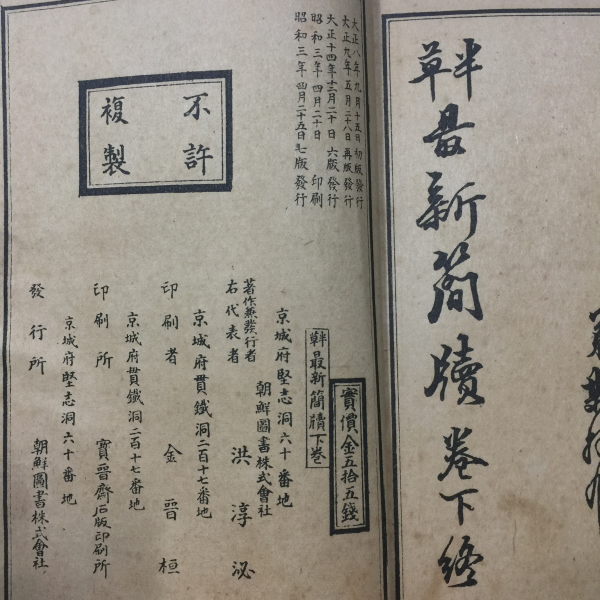 半草最新簡牘卷下終
大正八年九月十五日初版發行
大正九年五月二十八日再版發行
大正十四年十二月二十日六版發行
昭和三年四月二十日印刷
昭和三年四月二十五日七版發行
不許
複製
實價金五拾五錢
半草最新簡牘下卷
京城府堅志洞六十番地
著作兼發行者 朝鮮圖書株式會社
右代表者 洪淳泌
京城府貫鐵洞二百十七番地
印刷者 金晋桓
京城府貫鐵洞二百十七番地
印刷所 寶晋齋石版印刷所
京城府堅志洞六十番地
發行所 朝鮮圖書株式會社